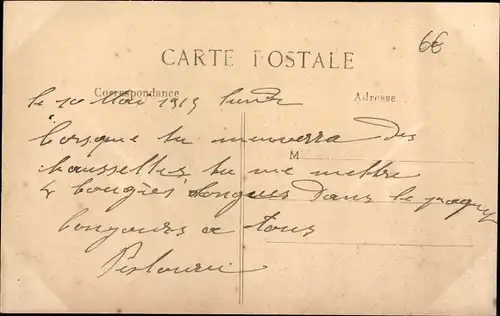 6€
CARTE POSTALE
Correspondance
Adresse
le 10 Mai 1915 lundi
Lorsque tu menverra des
M
chaussettes tu me mettra
4 bougies longues dans le paquet
bonjours a tous